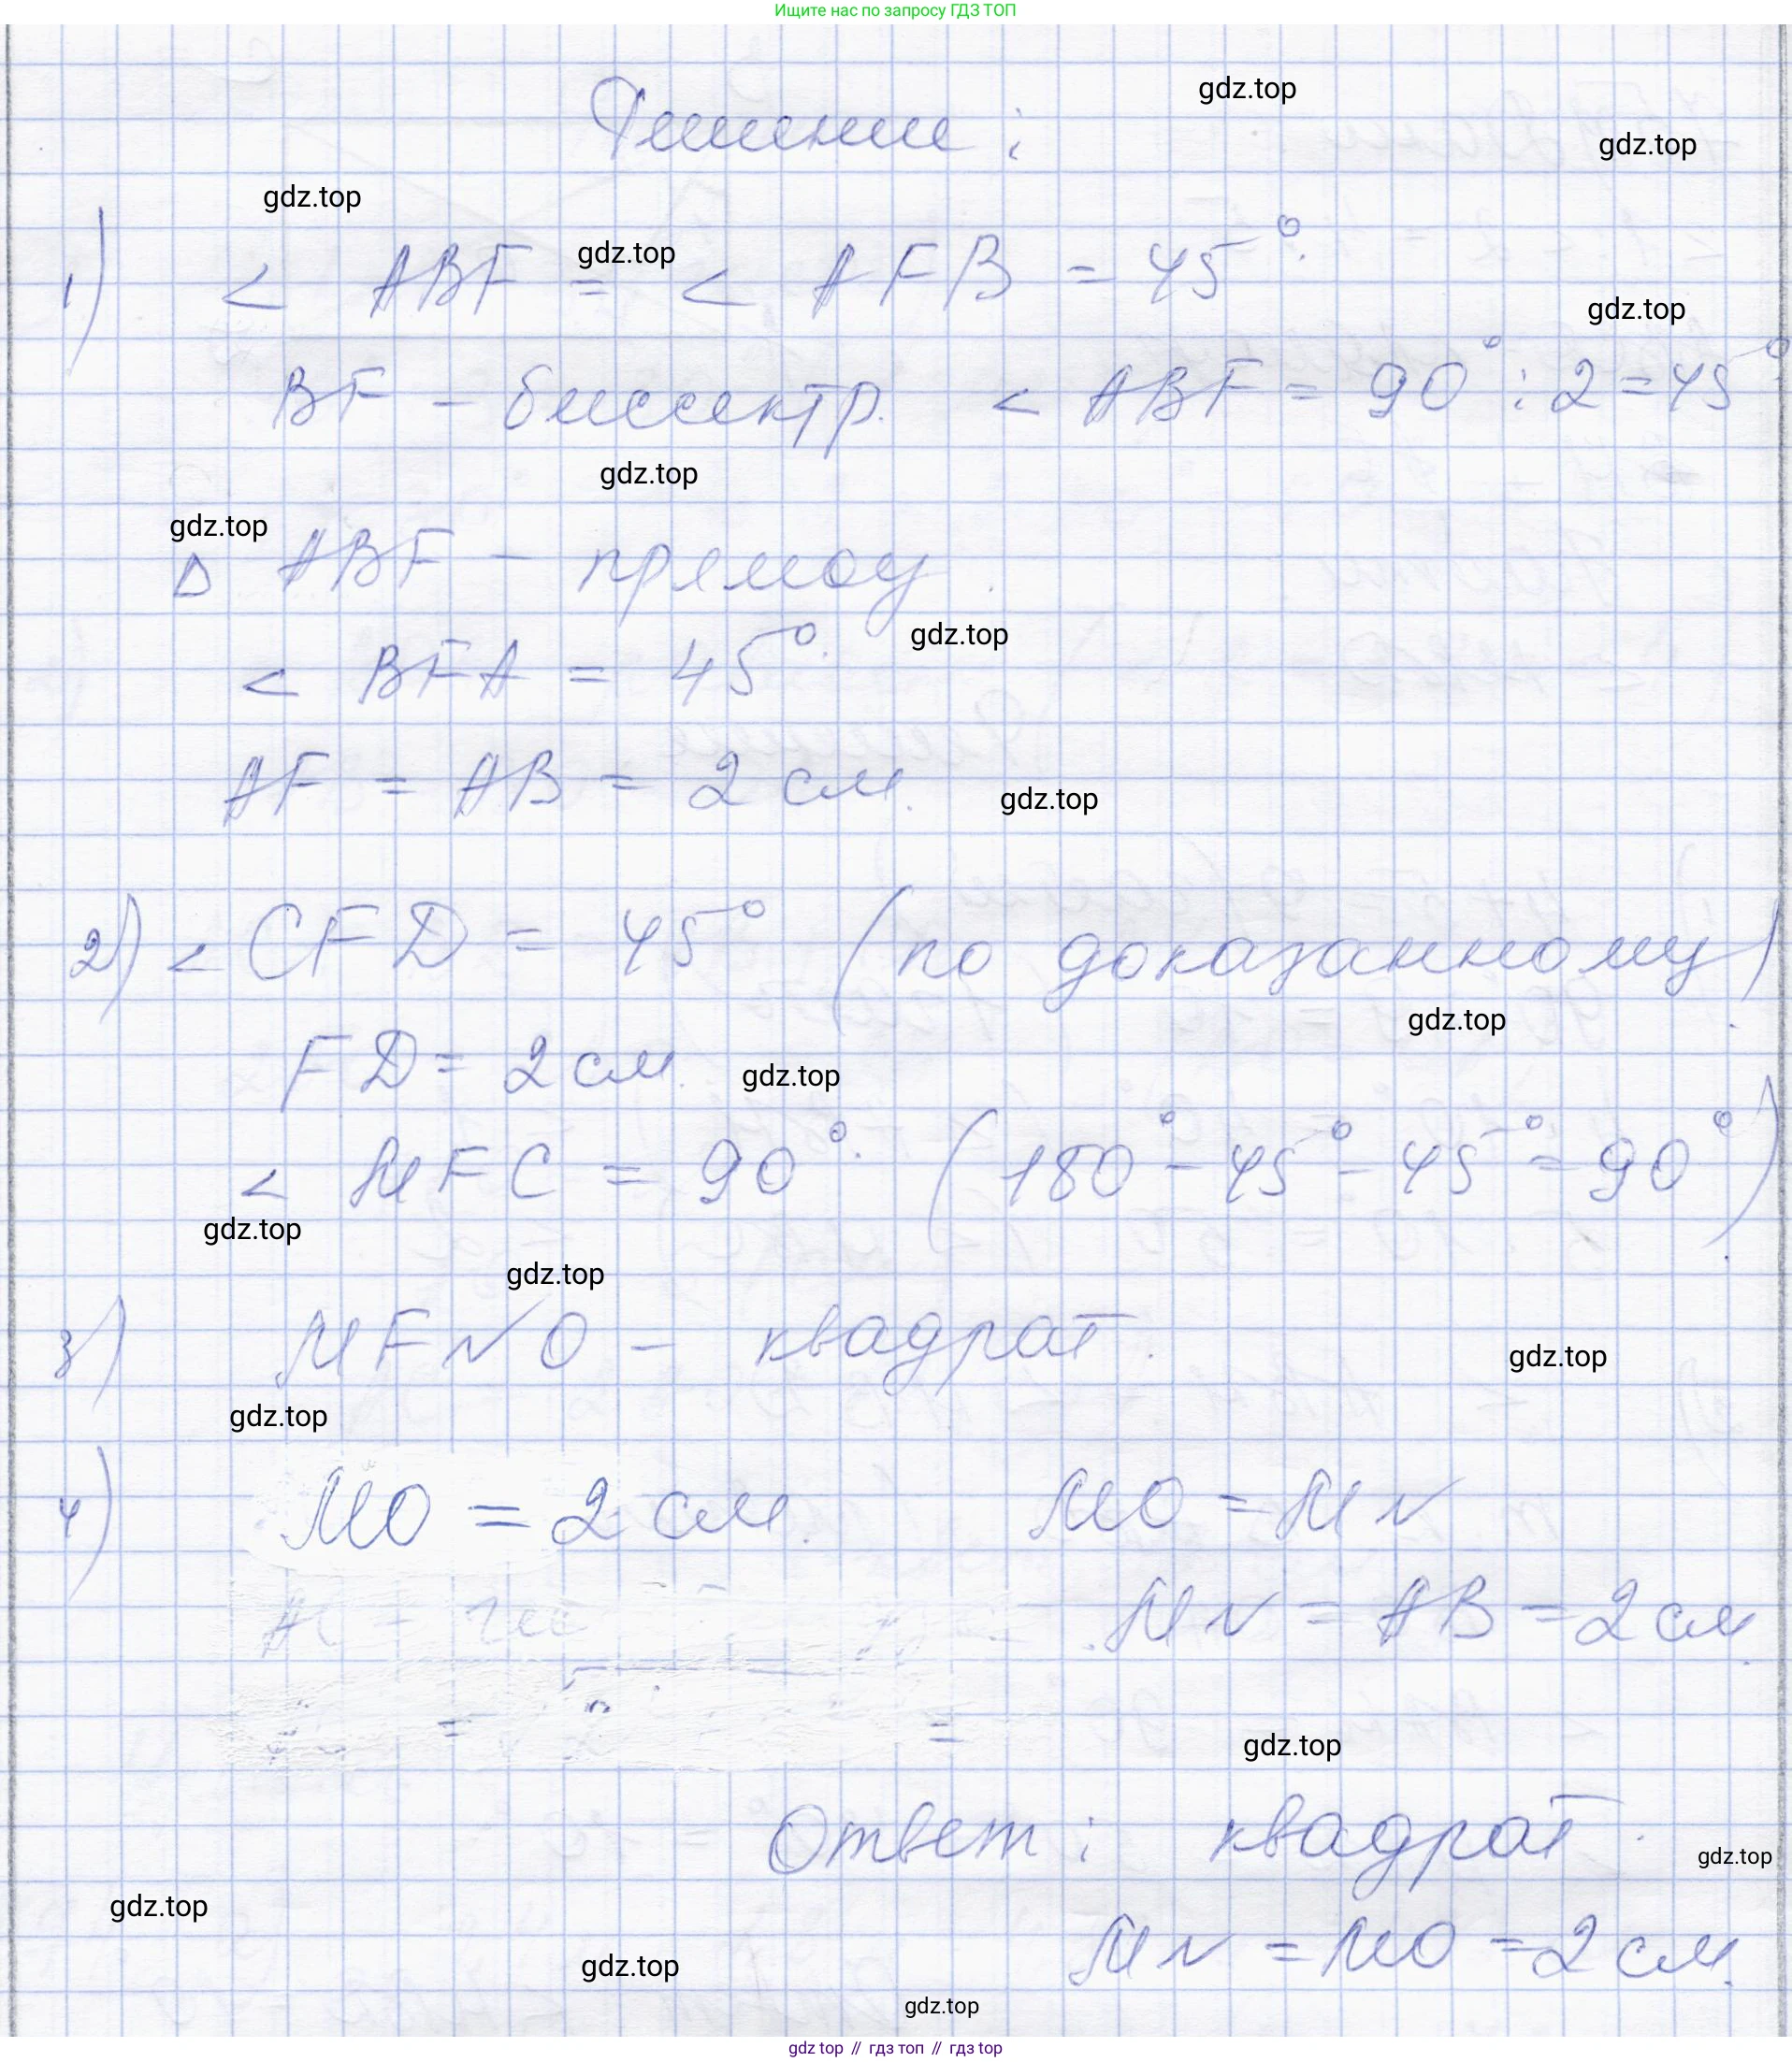 Ищите нас по запросу ГДЗ ТОП
gdz.top
Решение:
gdz.top
gdz.top
gdz.top
1) < ABF = < AFB = 45°.
gdz.top
BF - биссектр. < ABF = 90° : 2 = 45°
gdz.top
gdz.top
Δ ABF - прямоу.
gdz.top
< BFA = 45°.
AF = AB = 2 см.
gdz.top
2) < CFD = 45° (по доказанному).
gdz.top
FD = 2 см.
gdz.top
< MFC = 90°. (180° - 45° - 45° = 90°).
gdz.top
gdz.top
3) MFNO - квадрат.
gdz.top
gdz.top
4) MO = 2 см. MO = MN
MN = AB = 2 см.
gdz.top
Ответ: квадрат.
gdz.top
gdz.top
MN = MO = 2 см.
gdz.top
gdz.top
gdz top // гдз топ // гдз top